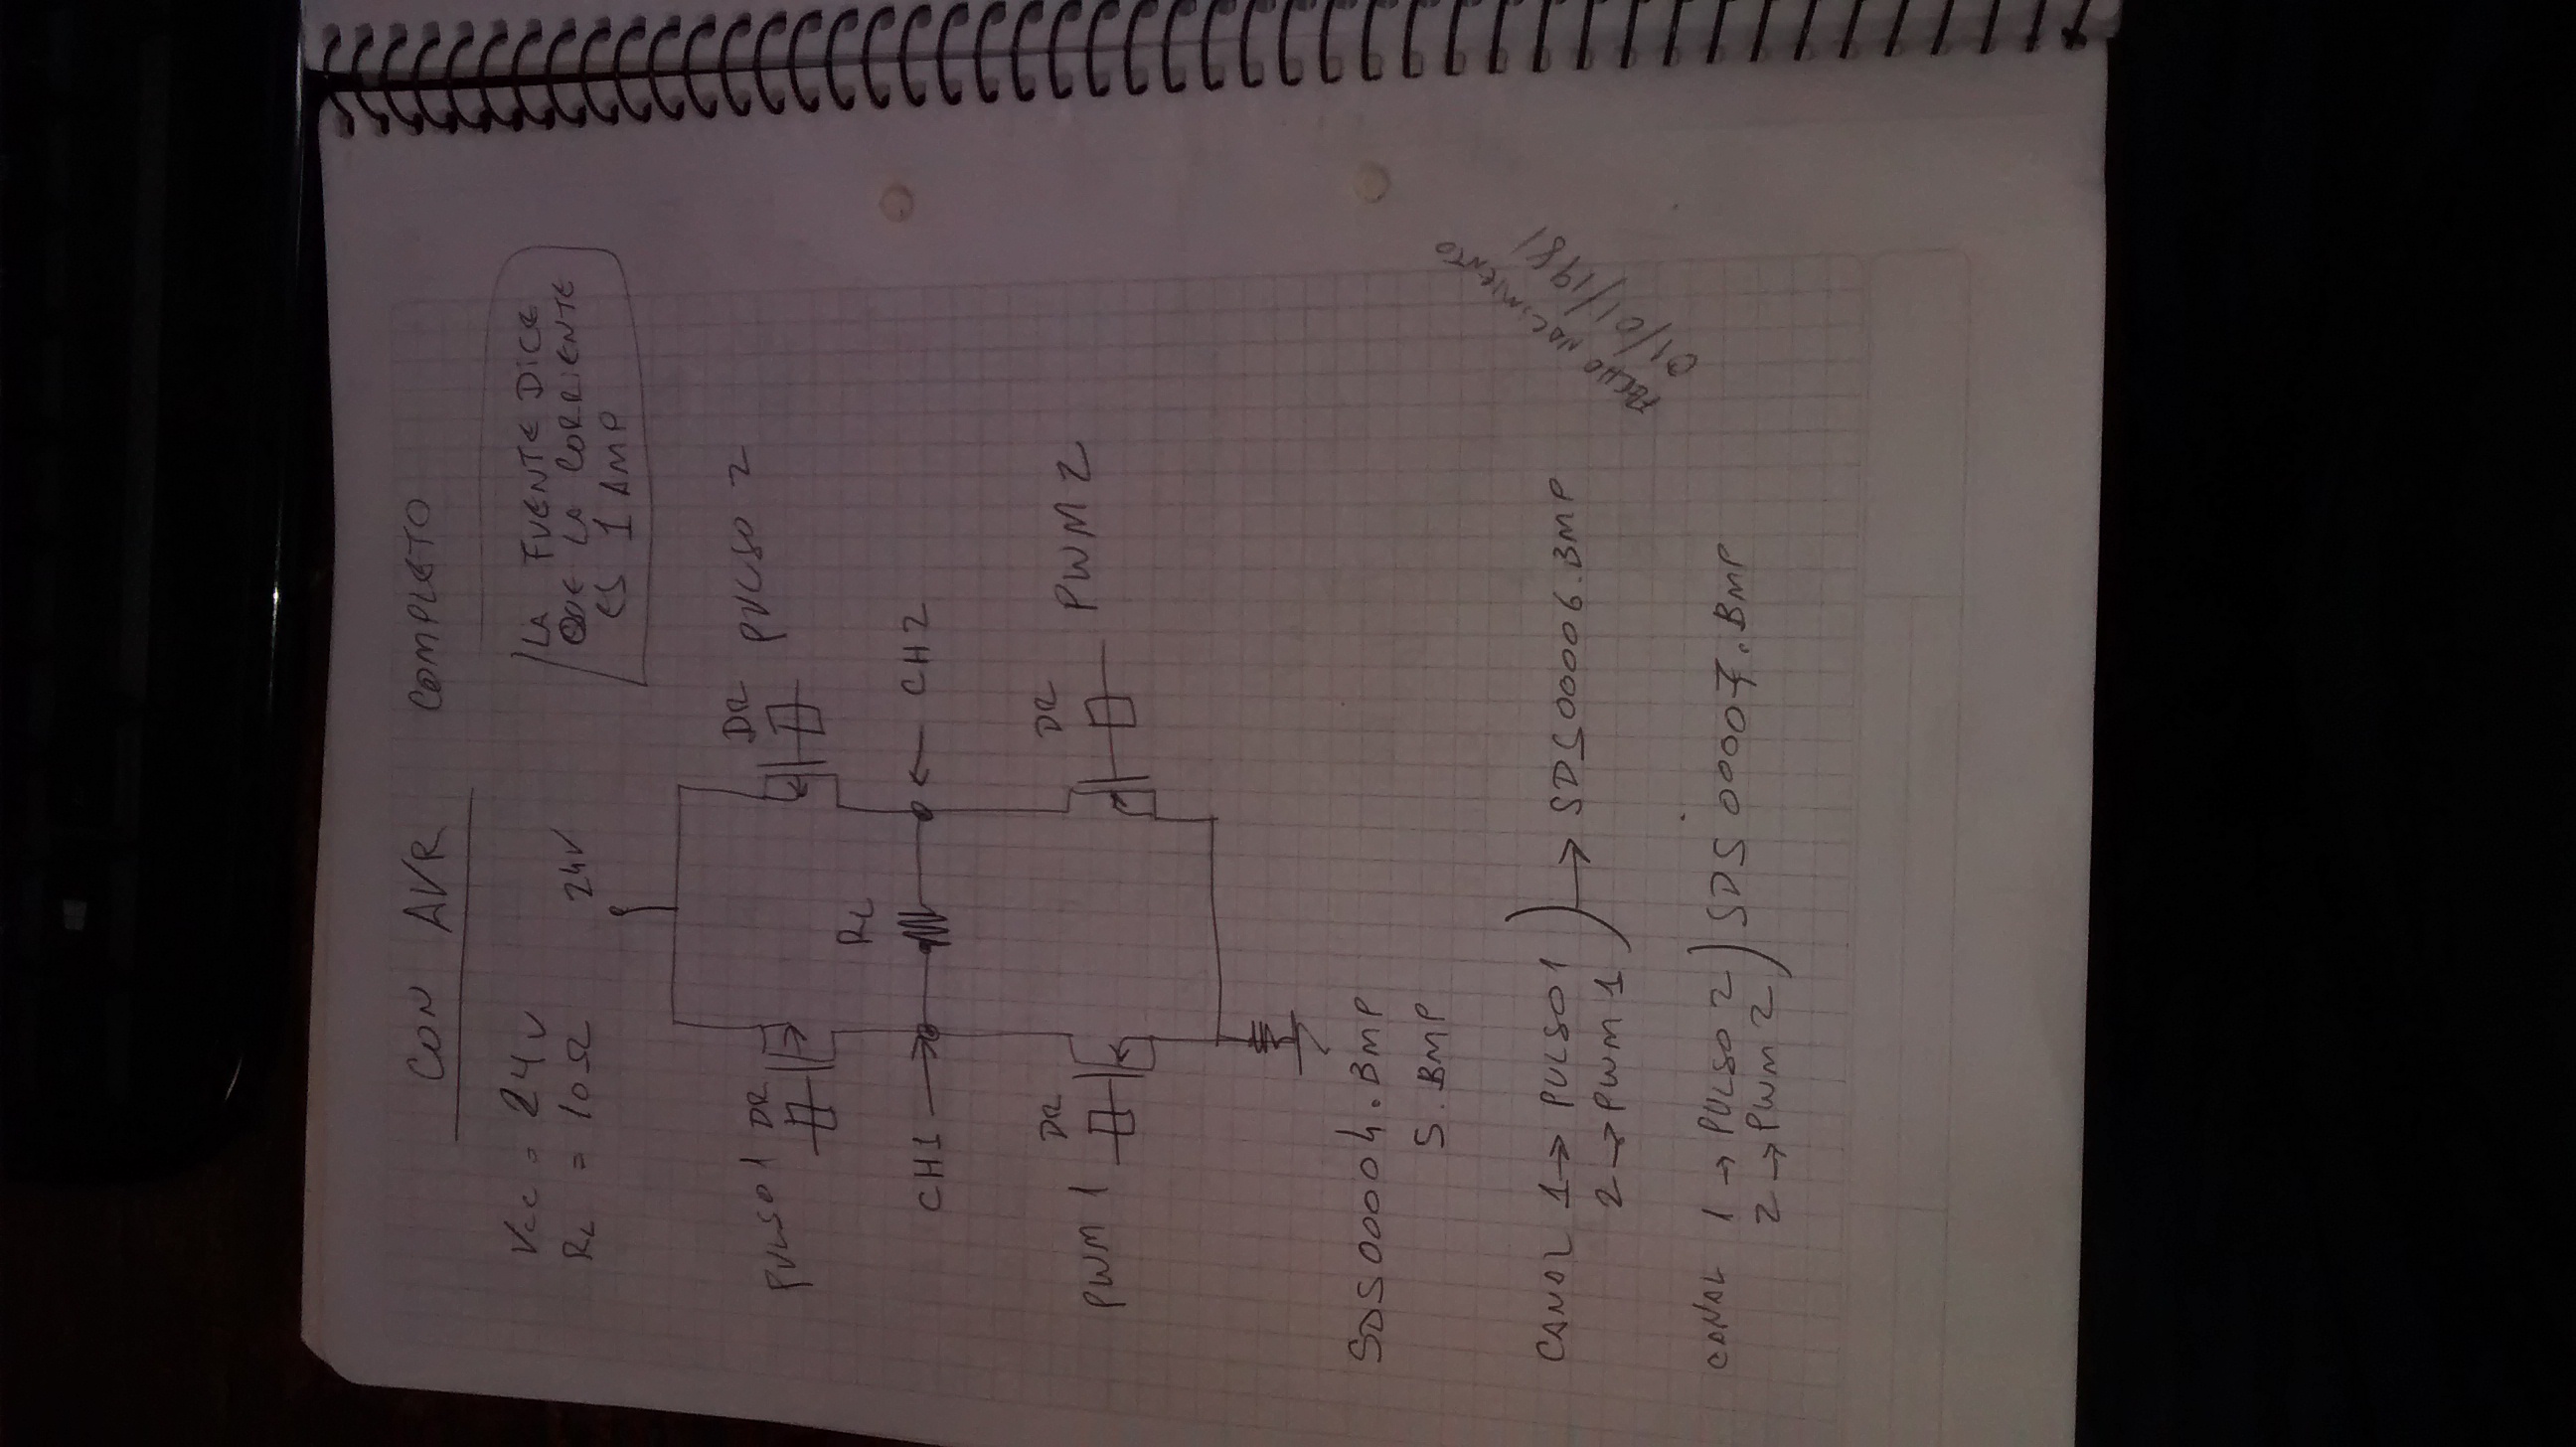 CON AVR COMPLETO
Vcc = 24V
RL = 10Ω
LA FUENTE DICE
QUE LA CORRIENTE
ES 1 AMP
24V
PULSO 1
DR
DR
PULSO 2
RL
CH1
CH2
PWM 1
DR
DR
PWM 2
SDS00004.BMP
5.BMP
CANAL 1→ PULSO 1
2→ PWM 1
→ SDS00006.BMP
CANAL 1→ PULSO 2
2→ PWM 2
SDS00007.BMP
NACIMIENTO
01/01/1981